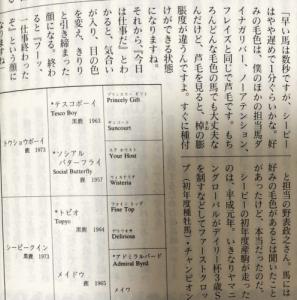 「早い馬は数秒ですが、シービー
はやや遅めで1分ぐらいかな。好
みの毛色は、僕のほかの担当馬ダ
イナガリバー、ノーアテンション、
フレイズと同じで芦毛です。もち
ろんどんな毛色の馬でも大丈夫な
んだけど、芦毛を見ると、棹の膨
脹度が違うんですよ。すぐに種付
けができる状態
になりますね。
それから『今日
は仕事だ』とわ
かると、気合い
が入り、目の色
を変え、きりり
と引き締まった
顔になる。終わ
ると『フーッ、
一仕事終わった
ぞ』という顔に
と担当の野表政之さん。馬には
好みの毛色があるとは聞いたこと
があったけど、本当だったのだ。
シービーの初年度産駒が走った
のは、平成元年。いきなりヤマニ
ングローバルがデイリー杯3歳S
を制するなどしてファーストクロッ
プ（初年度種牡馬）・チャンピオン
トウショウボーイ
鹿毛 1973
*テスコボーイ
Tesco Boy
黒鹿 1963
プリンスリー ギフト
Princely Gift
サンコート
Suncourt
*ソシアル
バターフライ
Social Butterfly
鹿毛 1957
ユア ホスト
Your Host
ウィステリア
Wisteria
シービークイン
黒鹿 1973
*トピオ
Topyo
黒鹿 1964
ファイン トップ
Fine Top
デリリオサ
Deliriosa
メイドウ
鹿毛 1965
*アドミラルバード
Admiral Byrd
メイワ